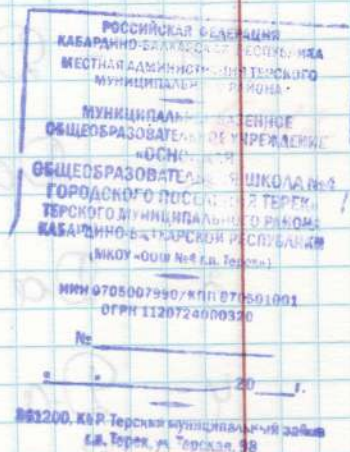 РОССИЙСКАЯ ФЕДЕРАЦИЯ
КАБАРДИНО-БАЛКАРСКАЯ РЕСПУБЛИКА
МЕСТНАЯ АДМИНИСТРАЦИЯ ТЕРСКОГО
МУНИЦИПАЛЬНОГО РАЙОНА
МУНИЦИПАЛЬНОЕ КАЗЕННОЕ
ОБЩЕОБРАЗОВАТЕЛЬНОЕ УЧРЕЖДЕНИЕ
«ОСНОВНАЯ
ОБЩЕОБРАЗОВАТЕЛЬНАЯ ШКОЛА №4
ГОРОДСКОГО ПОСЕЛЕНИЯ ТЕРЕК»
ТЕРСКОГО МУНИЦИПАЛЬНОГО РАЙОНА
КАБАРДИНО-БАЛКАРСКОЙ РЕСПУБЛИКИ
(МКОУ «ООШ №4 г.п. Терек»)
ИНН 0705007990/КПП 070501001
ОГРН 1120724000320
№
20 г.
361200, КБР Терский муниципальный район
г.п. Терек, ул. Терская, 98